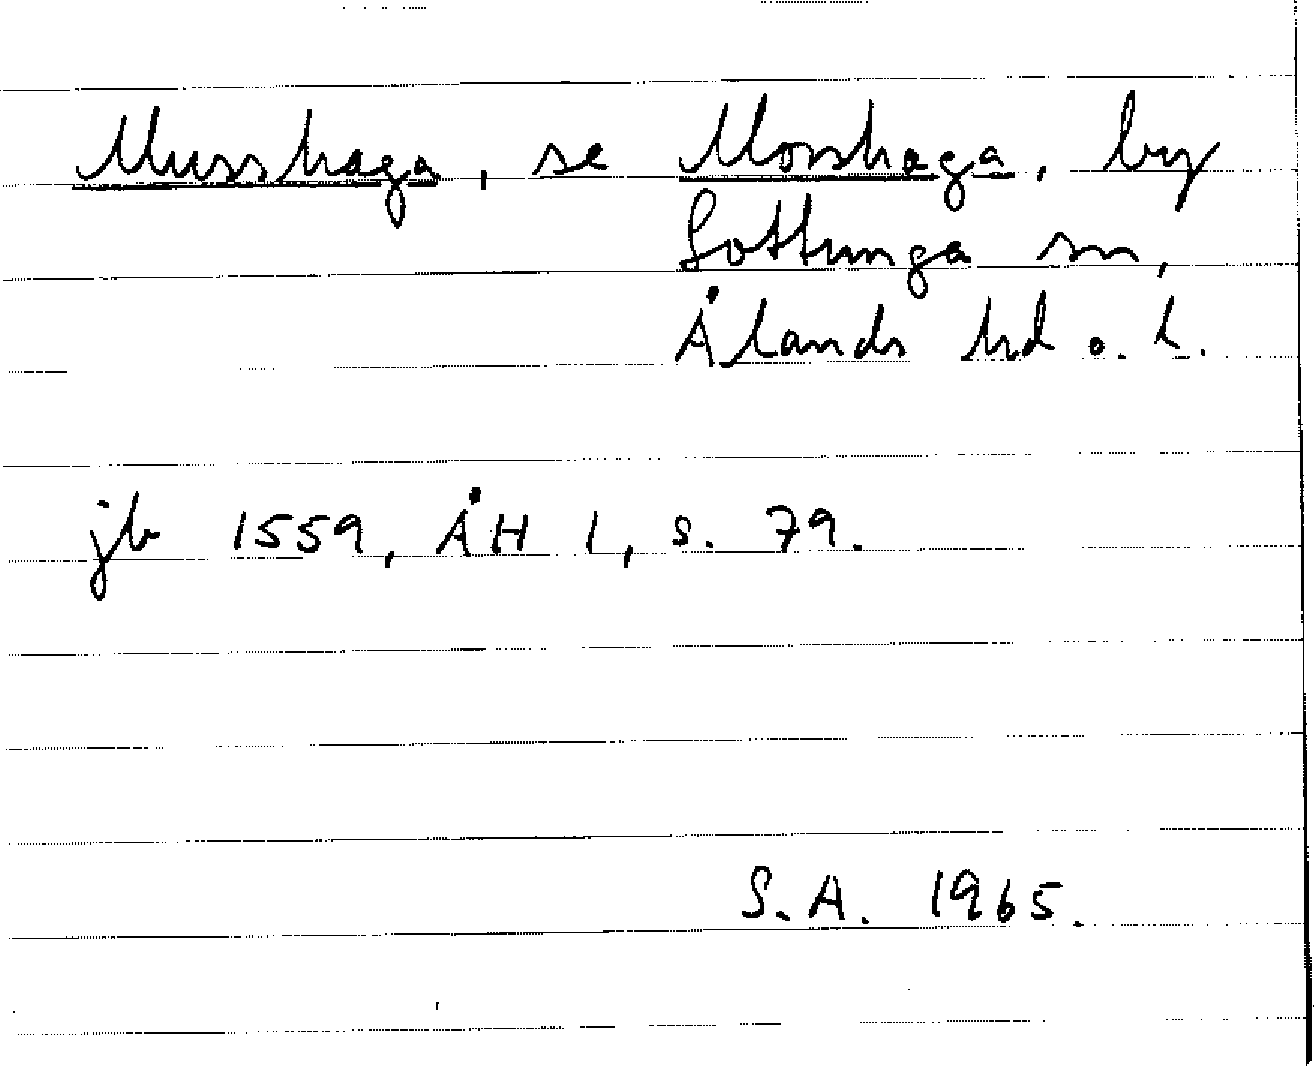 Musshaga, se Morshaga, by
Sottunga sn,
Ålands hd o. l.
jb 1559, ÅH 1, s. 79.
S.A. 1965.